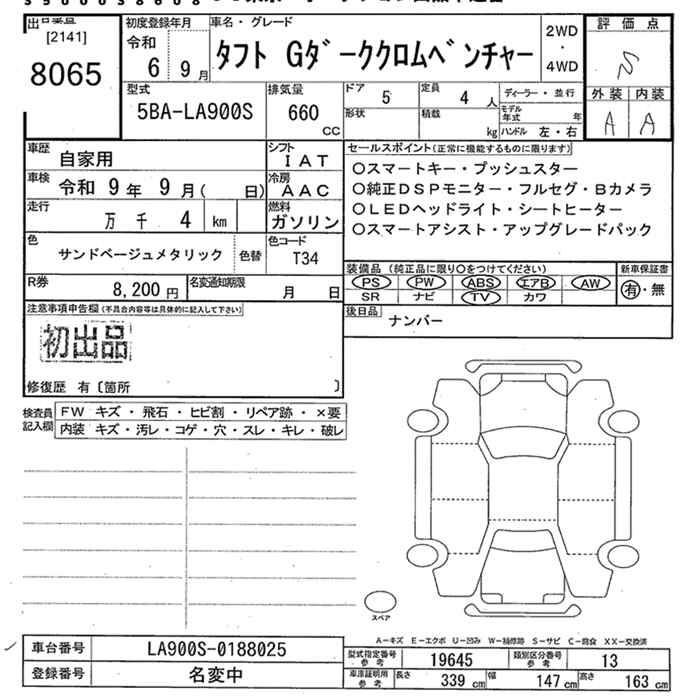 [2141]
8065
初度登録年月
令和
6 9月
車名・グレード
タフト Gダーククロムベンチャー
2WD
・
4WD
評価点
S
外装 内装
A A
型式
5BA-LA900S
排気量
660
CC
ドア
5
定員
4 人
形状
積載
kg
ディーラー・並行
モデル年式 年
ハンドル 左・右
車歴
自家用
シフト
IAT
車検
令和 9年 9月( 日)
冷房
AAC
走行
万 千 4 km
燃料
ガソリン
色
サンドベージュメタリック
色替
色コード
T34
R券
8,200 円
名変通知期限
月 日
セールスポイント(正常に機能するものに限ります)
○スマートキー・プッシュスター
○純正DSPモニター・フルセグ・Bカメラ
○LEDヘッドライト・シートヒーター
○スマートアシスト・アップグレードパック
装備品 (純正品に限り○をつけてください)
新車保証書
PS PW ABS エアB AW
SR ナビ TV カワ
有・無
後日品
ナンバー
注意事項申告欄(不具合内容等は具体的に記入して下さい)
初出品
修復歴 有〔箇所 〕
検査員
記入欄
FW キズ・飛石・ヒビ割・リペア跡・×要
内装 キズ・汚レ・コゲ・穴・スレ・キレ・破レ
スペア
A-キズ E-エクボ U-凹み W-補修跡 S-サビ C-腐食 XX-交換済
車台番号
LA900S-0188025
登録番号
名変中
型式指定番号
参考
19645
類別区分番号
参考
13
車庫証明用
参考
長さ
339 cm
幅
147 cm
高さ
163 cm